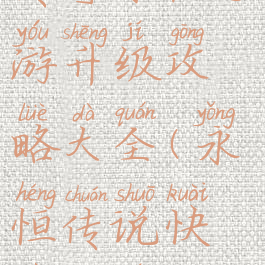 yóu shēng jí gōng
游升级攻
lüè dà quán yǒng
略大全(永
héng chuán shuō kuài
恒传说快